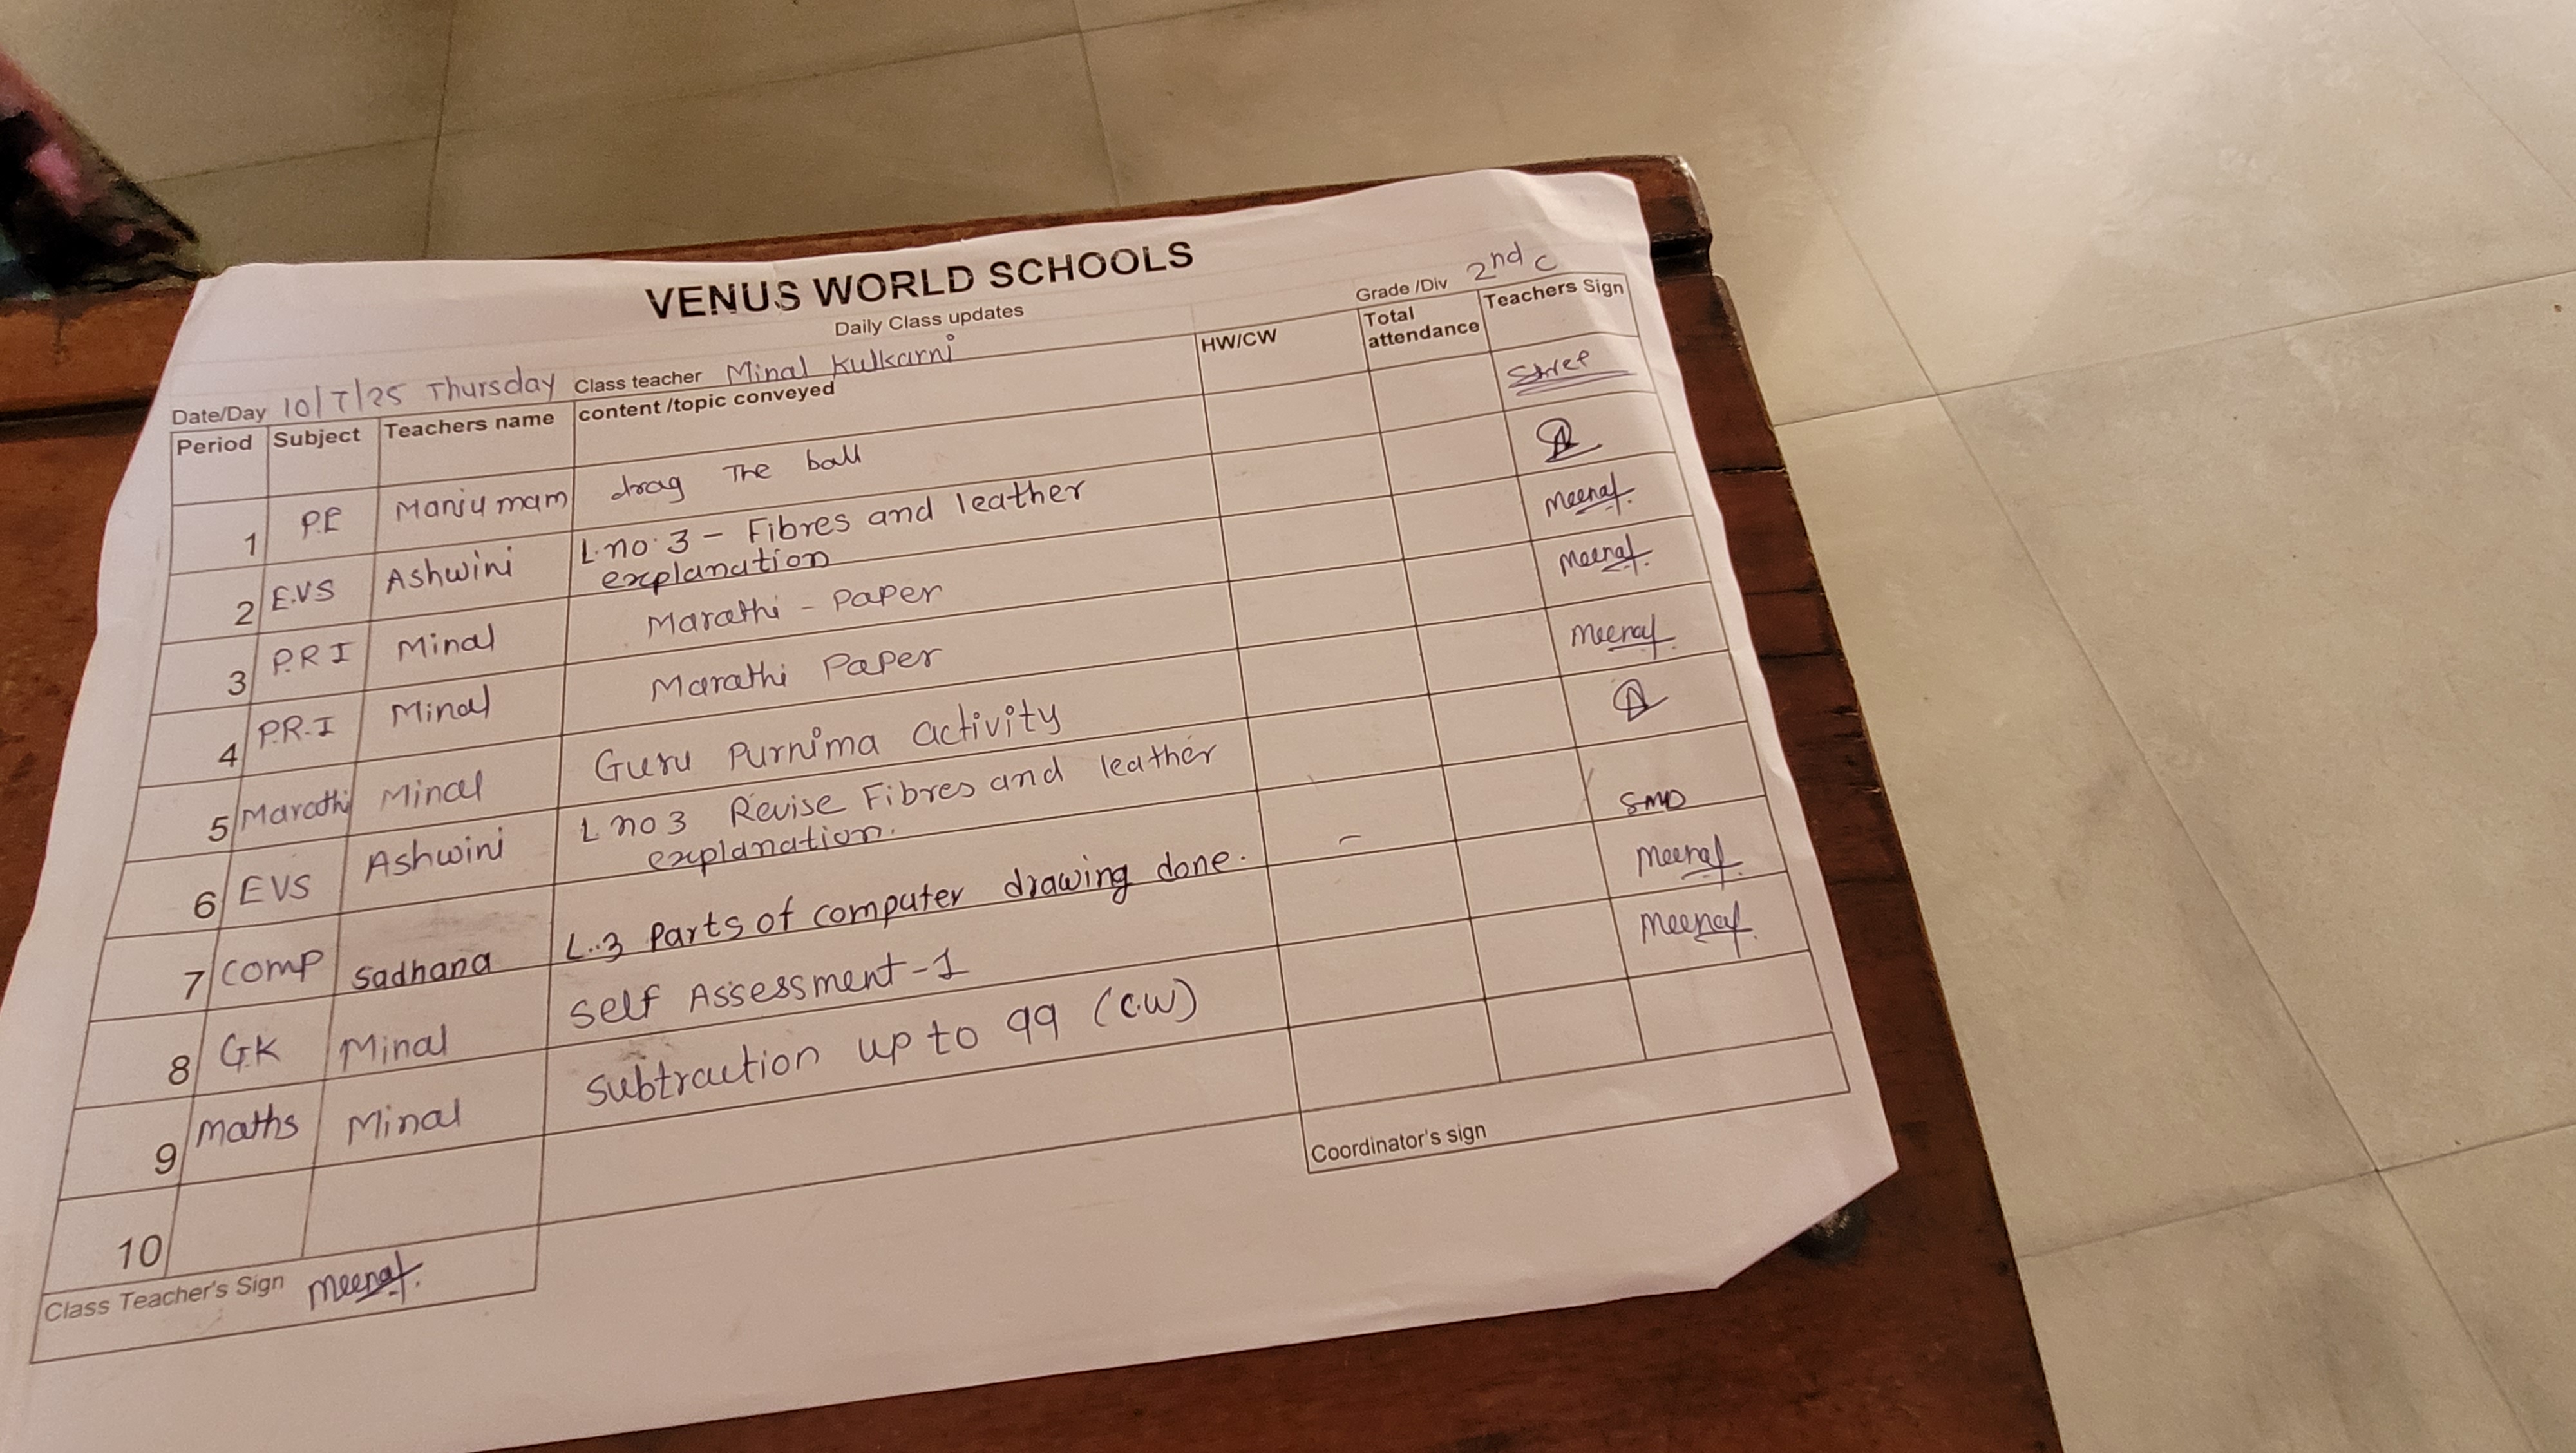 VENUS WORLD SCHOOLS
Daily Class updates
Grade /Div 2nd C
Date/Day 10/7/25 Thursday Class teacher Minal Kulkarni
Period Subject Teachers name content /topic conveyed HW/CW Total attendance Teachers Sign
1 P.E Manju mam drag The ball
2 E.VS Ashwini L.no.3 - Fibres and leather
explanation
3 P.R I Minal Marathi - Paper Meenal
4 P.R.I Minal Marathi Paper Meenal
5 Marathi Minal Guru Purnima activity Meenal
6 EVS Ashwini L no 3 Revise Fibres and leather
explanation.
7 Comp Sadhana L..3 Parts of computer drawing done. - SMD
8 G.K Minal Self Assessment-1 Meenal
9 Maths Minal Subtraction up to 99 (C.W) Meenal
10
Class Teacher's Sign Meenal
Coordinator's sign